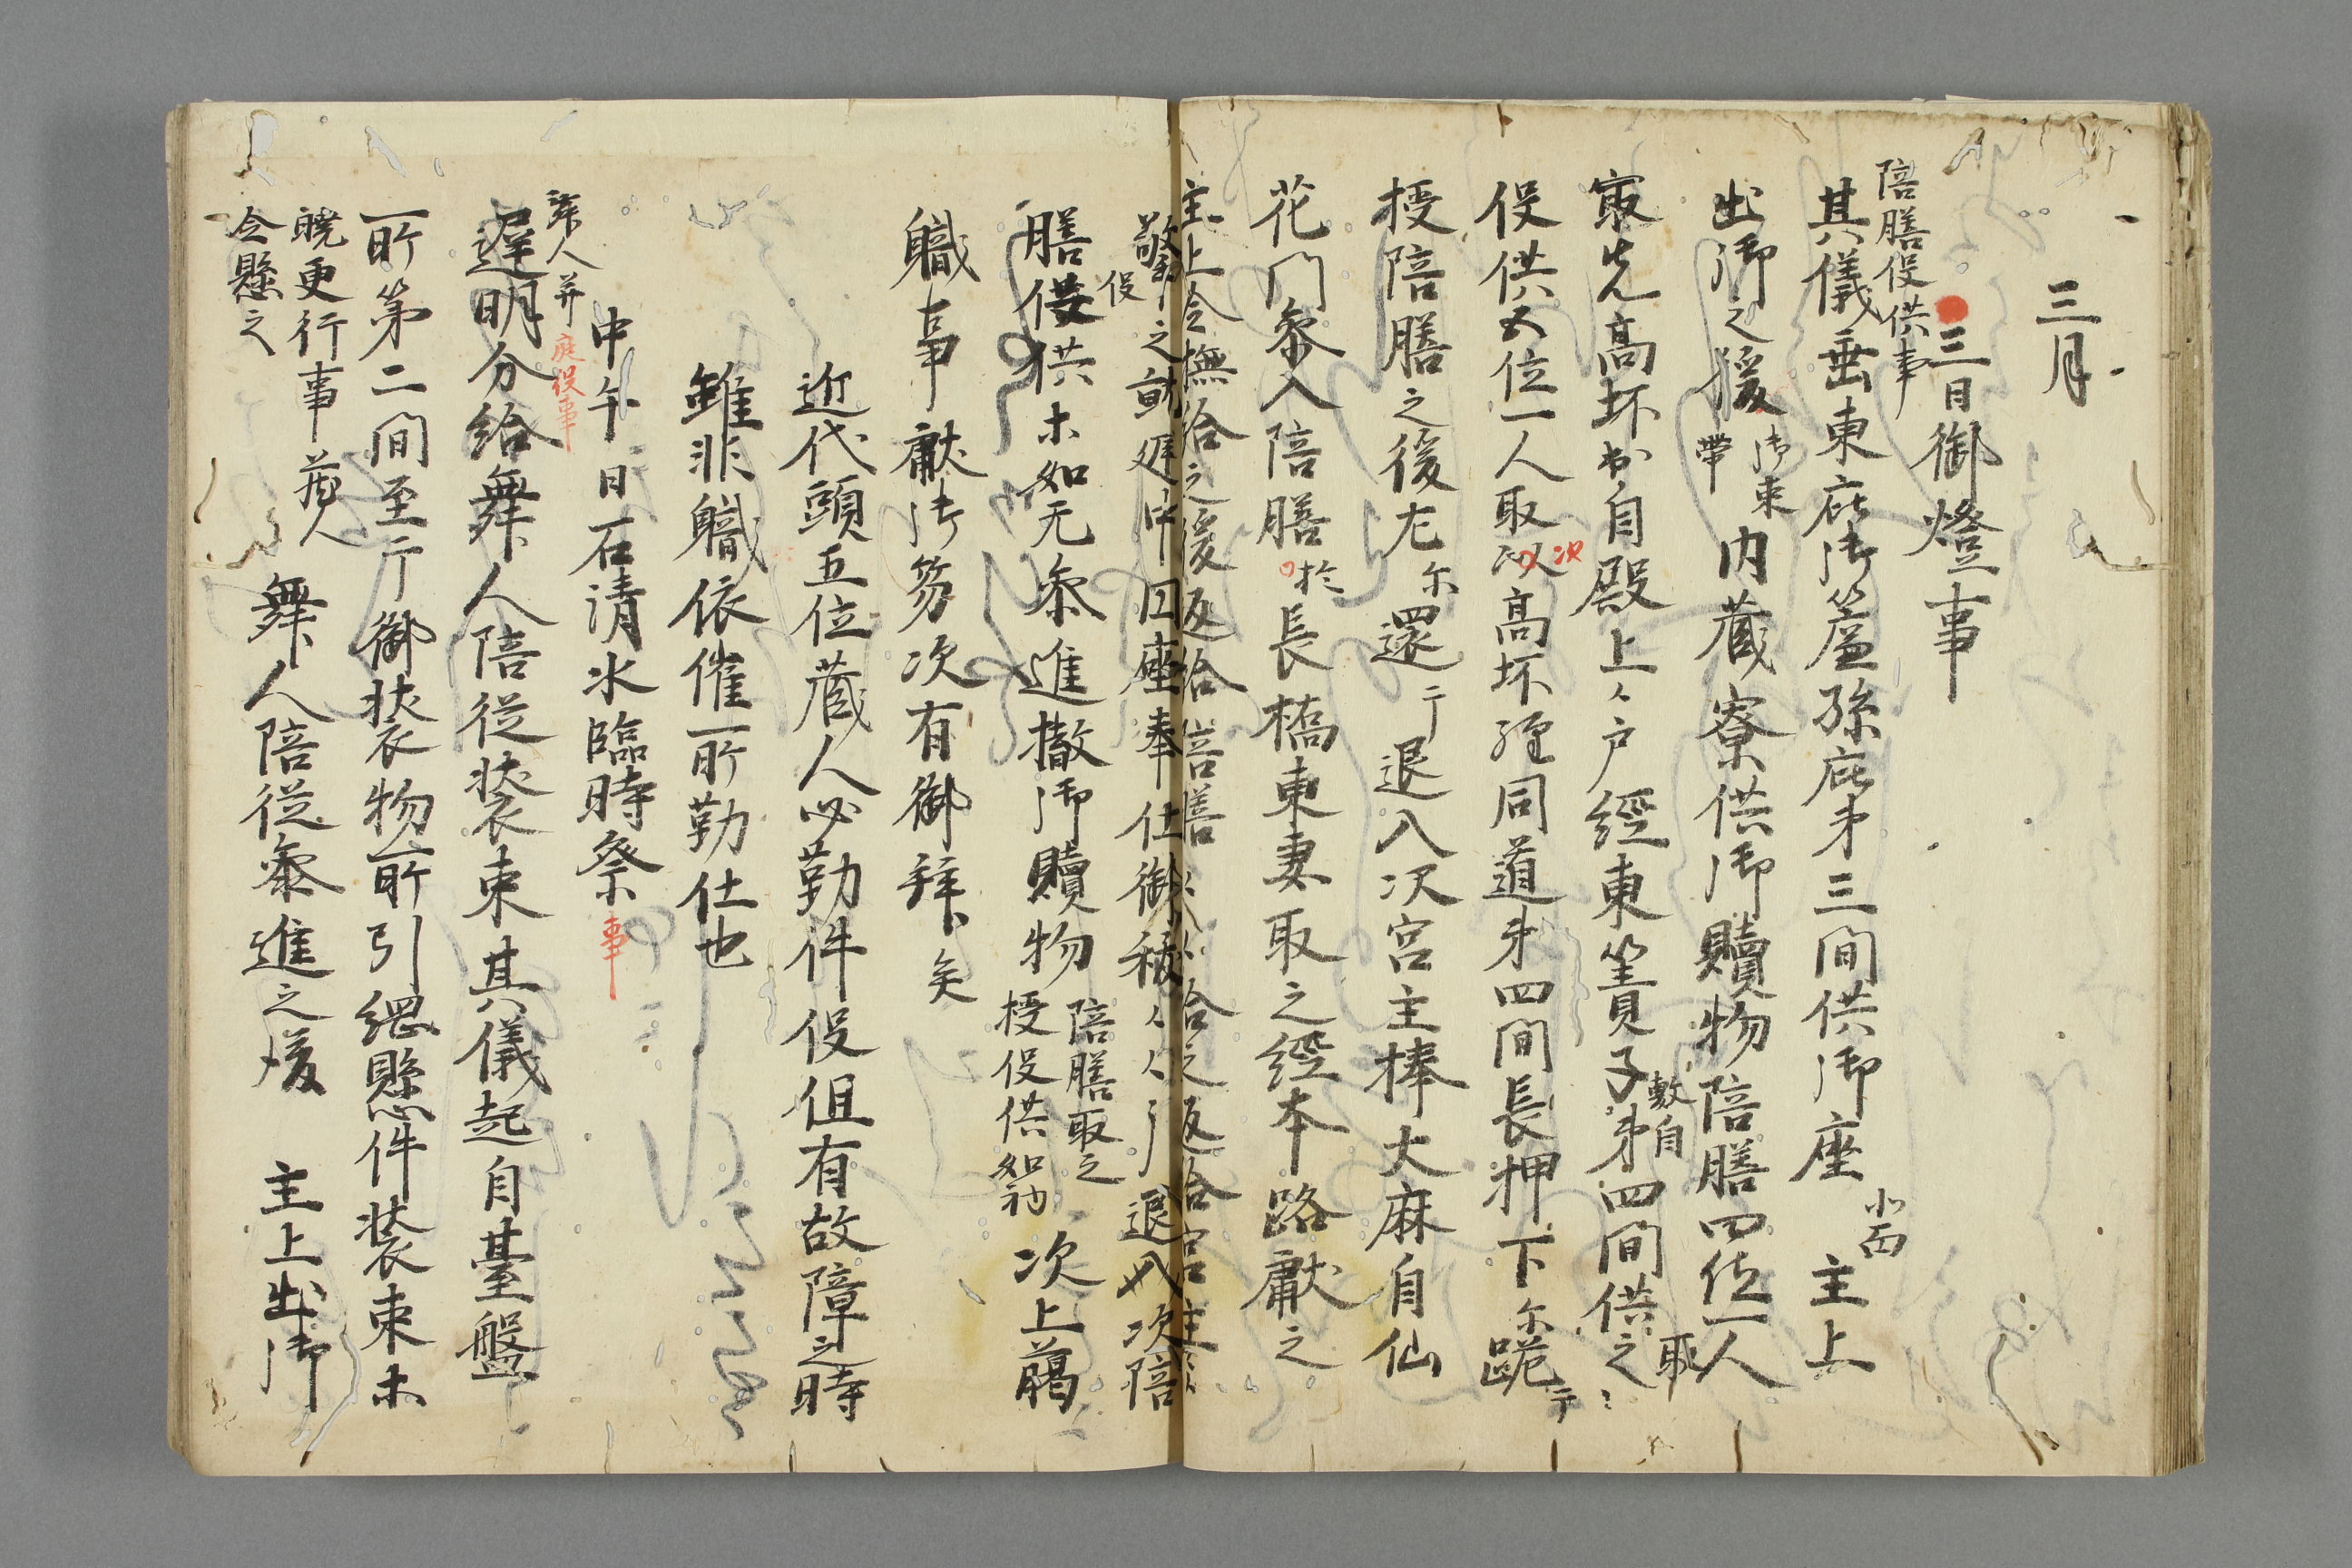 三月
三日御燈事
陪膳役供事
其儀垂東庇御簾孫庇第三間供御座 北面 主上
出御之後 御束帯 内蔵寮供御贖物陪膳四位一人
取
㝡先高坏出自殿上々戸經東簀子 敷自 第四間供之
役供五位一人取次高坏經同道第四間長押下尓跪テ
授陪膳之後左尓還テ退入次宮主捧大麻自仙
花門参入陪膳於長橋東妻取之經本路献之
主上令撫給之後返給陪膳々々給之返給宮主々々
警之就庭中円座奉仕御祓々々了退入次陪
膳役供ホ如元参進撤御贖物 陪膳取之授役供如初 次上臈
役
職事献御笏次有御拜矣
近代頭五位蔵人必勤件役但有故障之時
雖非職依催所勤仕也
中午日石清水臨時祭事
舞人并庭役事
遅明分給舞人陪従装束其儀起自臺盤
所第二間至于御装物所引綱懸件装束ホ
暁更行事蔵人令懸之 舞人陪従参進之後 主上出御